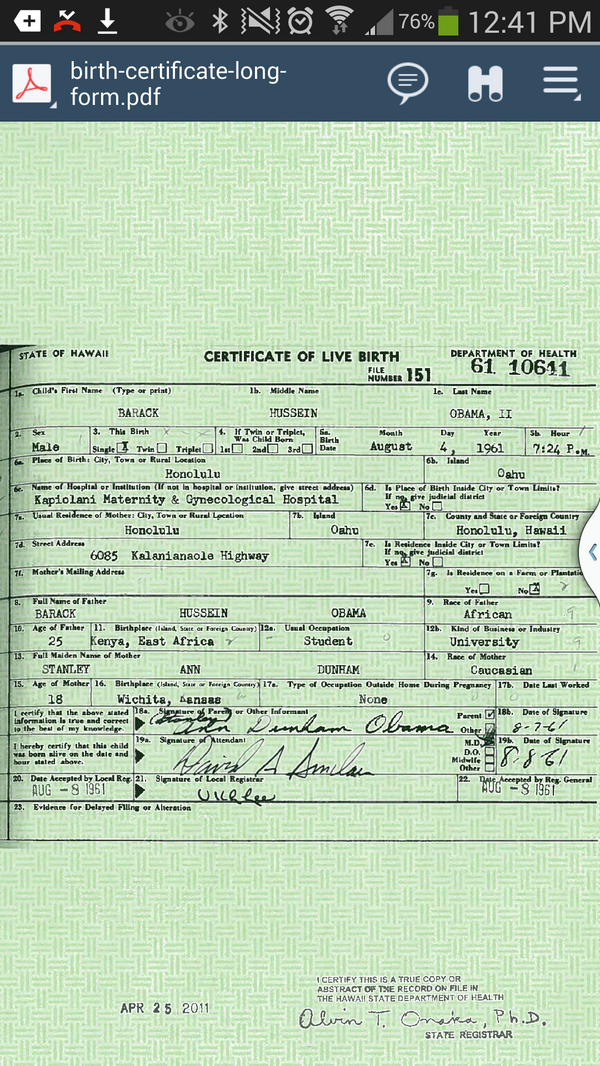 76% 12:41 PM
birth-certificate-long-
form.pdf
STATE OF HAWAII CERTIFICATE OF LIVE BIRTH DEPARTMENT OF HEALTH
FILE NUMBER 151 61 10641
1a. Child's First Name (Type or print) 1b. Middle Name 1c. Last Name
BARACK HUSSEIN OBAMA, II
2. Sex 3. This Birth 4. If Twin or Triplet, Was Child Born 5a. Birth Date Month Day Year 5b. Hour
Male Single X Twin Triplet 1st 2nd 3rd August 4, 1961 7:24 P.M.
6a. Place of Birth: City, Town or Rural Location 6b. Island
Honolulu Oahu
6c. Name of Hospital or Institution (If not in hospital or institution, give street address) 6d. Is Place of Birth Inside City or Town Limits? If no, give judicial district
Kapiolani Maternity & Gynecological Hospital Yes X No
7a. Usual Residence of Mother: City, Town or Rural Location 7b. Island 7c. County and State or Foreign Country
Honolulu Oahu Honolulu, Hawaii
7d. Street Address 7e. Is Residence Inside City or Town Limits? If no, give judicial district
6085 Kalanianaole Highway Yes X No
7f. Mother's Mailing Address 7g. Is Residence on a Farm or Plantatio
Yes No X
8. Full Name of Father 9. Race of Father
BARACK HUSSEIN OBAMA African
10. Age of Father 11. Birthplace (Island, State or Foreign Country) 12a. Usual Occupation 12b. Kind of Business or Industry
25 Kenya, East Africa Student University
13. Full Maiden Name of Mother 14. Race of Mother
STANLEY ANN DUNHAM Caucasian
15. Age of Mother 16. Birthplace (Island, State or Foreign Country) 17a. Type of Occupation Outside Home During Pregnancy 17b. Date Last Worked
18 Wichita, Kansas None
I certify that the above stated information is true and correct to the best of my knowledge. 18a. Signature of Parent or Other Informant Parent Other 18b. Date of Signature
(Stanley) Ann Dunham Obama 8-7-61
I hereby certify that this child was born alive on the date and hour stated above. 19a. Signature of Attendant M.D. D.O. Midwife Other 19b. Date of Signature
David A Sinclair 8-8-61
20. Date Accepted by Local Reg. 21. Signature of Local Registrar 22. Date Accepted by Reg. General
AUG -8 1961 AUG -8 1961
23. Evidence for Delayed Filing or Alteration
APR 25 2011
I CERTIFY THIS IS A TRUE COPY OR
ABSTRACT OF THE RECORD ON FILE IN
THE HAWAII STATE DEPARTMENT OF HEALTH
Alvin T. Onaka, Ph.D.
STATE REGISTRAR